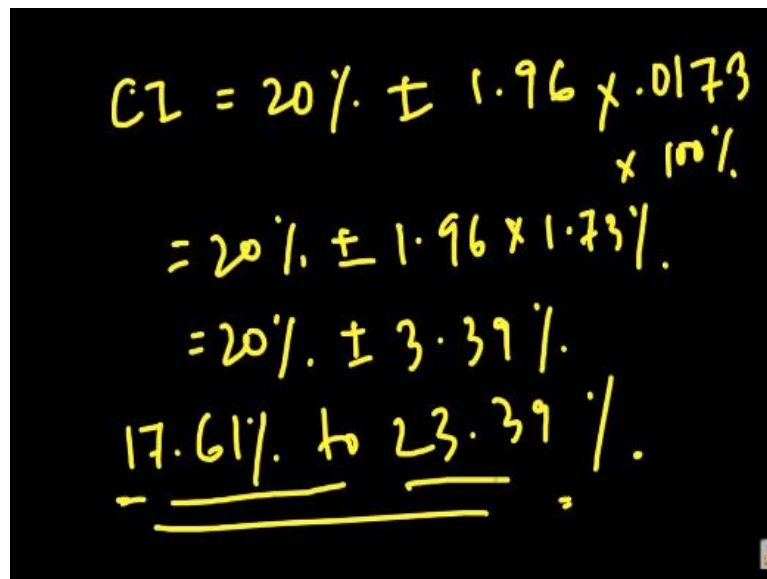 CI = 20% ± 1.96 × .0173
× 100%
= 20% ± 1.96 × 1.73%.
= 20% ± 3.39%.
17.61% to 23.39%.